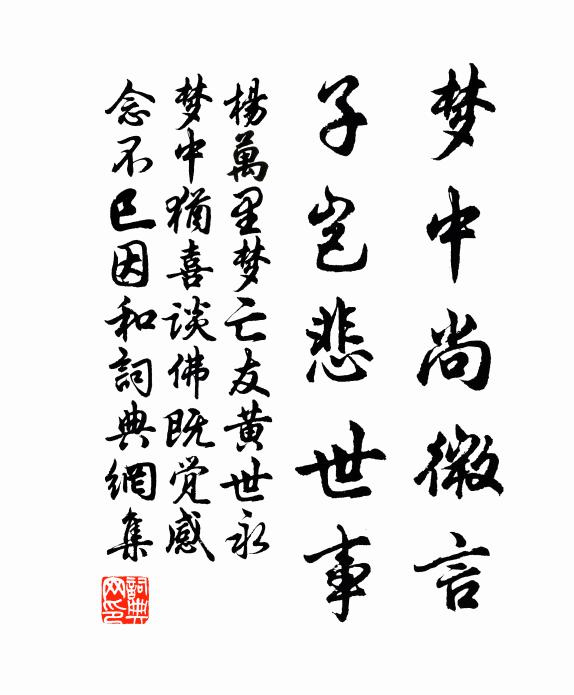 梦中尚微言
子岂悲世事
楊萬里梦亡友黄世永
梦中猶喜谈佛既觉感
念不已因和詞典網集
詞典网印